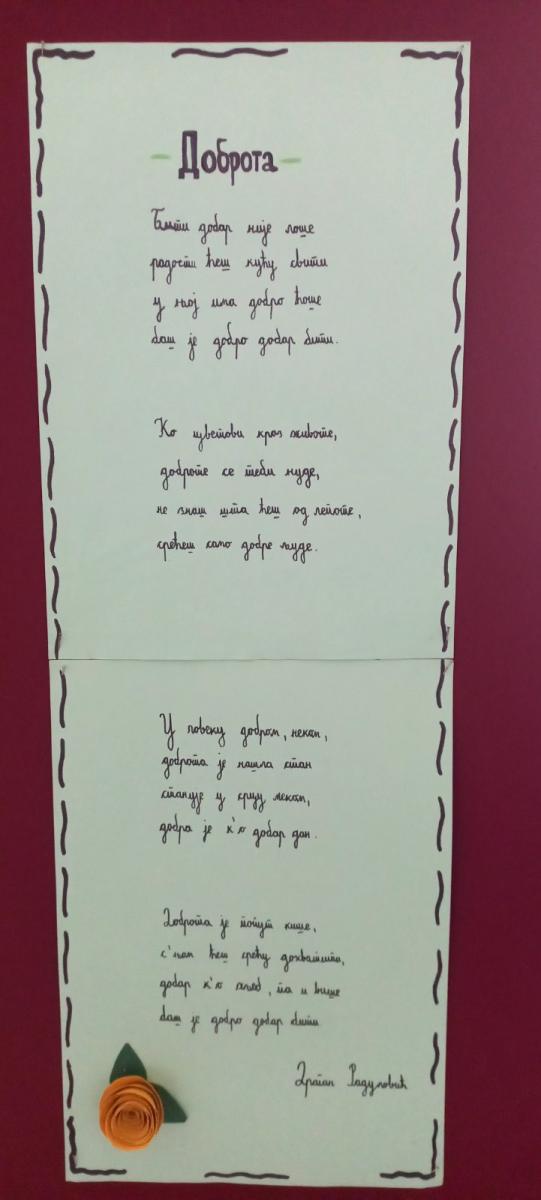 Доброта
Бити добар није лоше
радости ћеш кућу свити
у њој има добро ћоше
баш је добро добар бити.
Ко цветови кроз животе,
доброте се теби нуде,
не знаш шта ћеш од лепоте,
срећеш само добре људе.
У човеку добром, неком,
доброта је нашла стан
станује у срцу меком,
добра је к'о добар дан.
Доброта је попут кише,
с'њом ћеш срећу дохватити,
добар к'о хлеб, па и више
баш је добро добар бити
Драган Радуловић